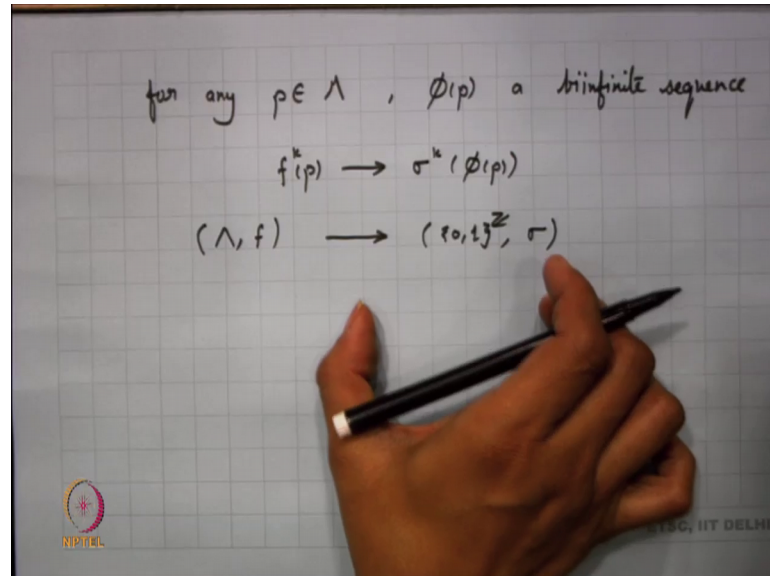 for any p ∈ Λ , ϕ(p) a biinfinite sequence
fᵏ(p) → σᵏ(ϕ(p))
(Λ, f) → ({0,1}^ℤ, σ)
NPTEL
ETSC, IIT DELHI